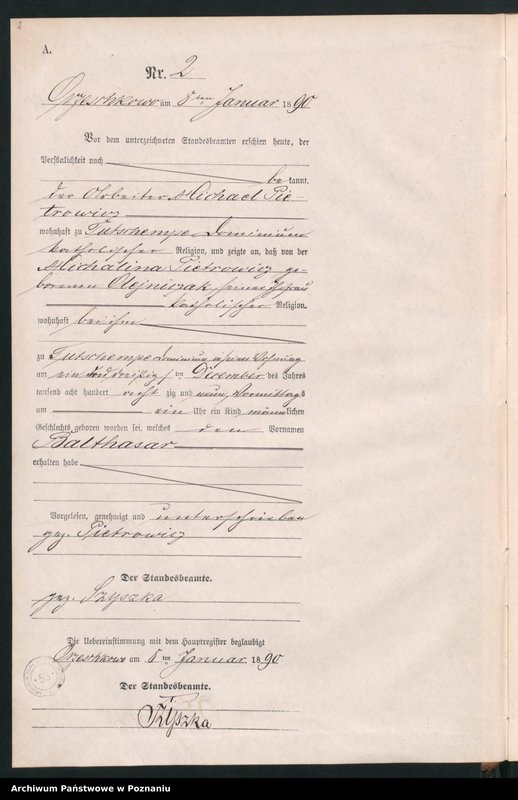 A.
Nr. 2
Orzeschkowo am 8ten Januar 1890
Vor dem unterzeichneten Standesbeamten erschien heute, der
Persönlichkeit nach
be kannt,
der Arbeiter Michael Pie-
trowicz
wohnhaft zu Tutschempe Dominium
katholischer Religion, und zeigte an, daß von der
Michalina Pietrowicz ge-
borenen Olejniczak seiner Ehefrau
katholischer Religion,
wohnhaft bei ihm
zu Tutschempe Dominium in seiner Wohnung
am ein und dreißig ten December des Jahres
tausend acht hundert acht zig und neun, Vormittags
um ein Uhr ein Kind männlichen
Geschlechts geboren worden sei, welches den Vornamen
Balthasar
erhalten habe
Vorgelesen, genehmigt und unterschrieben
gez. Pietrowicz
Der Standesbeamte.
gez. Szyszka
Die Uebereinstimmung mit dem Hauptregister beglaubigt
Orzeschkowo am 8ten Januar 1890
Der Standesbeamte.
Szyszka
Archiwum Państwowe w Poznaniu